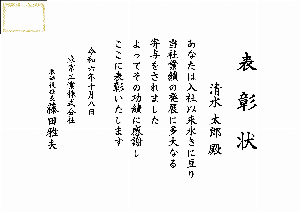 表彰状
清水 太郎 殿
あなたは入社以来永きに亘り
当社業績の発展に多大なる
寄与をされました
よってその功績に感謝し
ここに表彰いたします
令和六年十月八日
株式会社
代表取締役社長 藤田雅夫